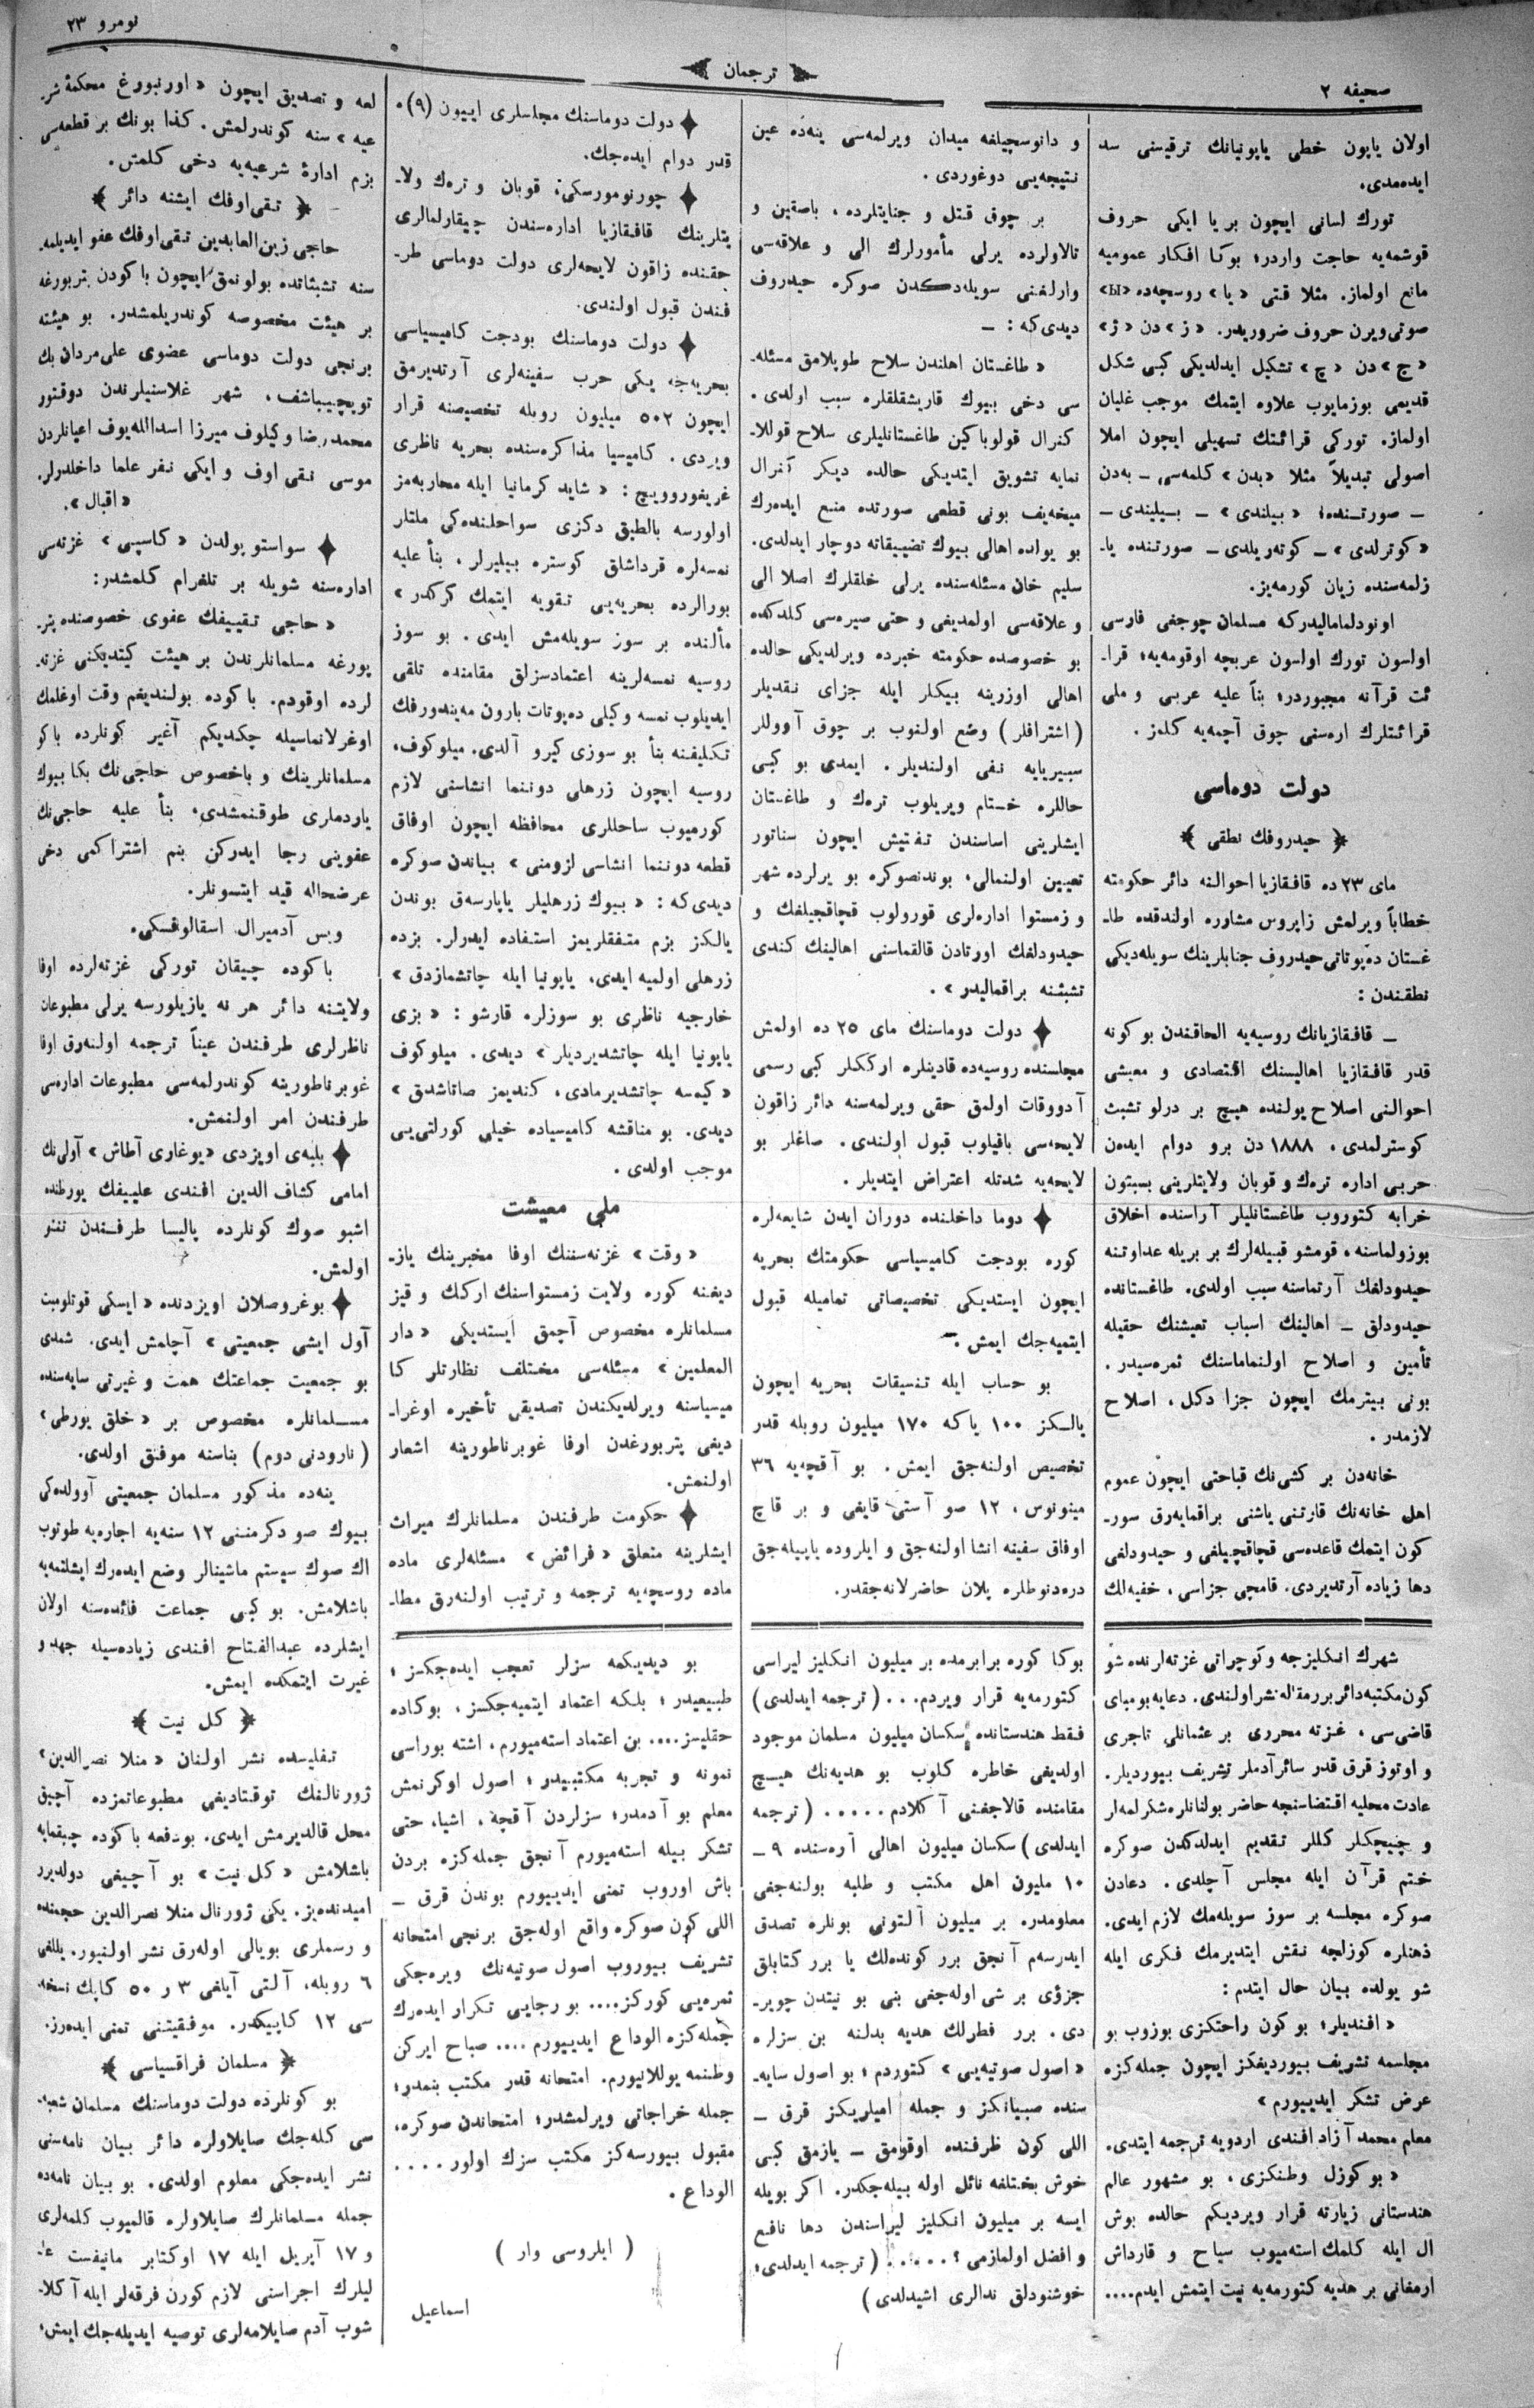 صحيفه ٢
ترجمان
نومرو ٢٣
اولان ياپون خطى ياپونيانك ترقيسنى سد
ايده‌مدى.
تورك لسانى ايچون بر يا ايكى حروف
قوشمه‌يه حاجت واردر؛ بوكا افكار عموميه
مانع اولماز. مثلا قتى «يا» روسچه‌ده «ы»
صوتى ويرن حروف ضروريدر. «ز» دن «ژ»
«ج» دن «چ» تشكيل ايدلديكى كبى شكل
قديمى بوزمايوب علاوه ايتمك موجب غليان
اولماز. توركى قرائتك تسهيلى ايچون املا
اصولى تبديلاً مثلا «بدن» كلمه‌سى – به‌دن
– صورتنده؛ «بيلندى» – بيليندى –
«كوترلدى» – كوته‌ريلدى – صورتنده يا-
زلمه‌سنده زيان كورمه‌يز.
اونودلماماليدركه مسلمان چوجغى فارسى
اولسون تورك اولسون عربچه اوقومه‌يه؛ قرا-
ئت قرآنه مجبوردر؛ بنأ عليه عربى و ملى
قرائتلرك ارەسنى چوق آچمه‌يه كلمز.
دولت دوماسى
﴿ حيدروفك نطقى ﴾
ماى ٢٣ ده قافقازيا احوالنه دائر حكومته
خطاباً ويرلمش زاپروس مشاوره اولندقده طا-
غستان ده‌پوتاتى حيدروف جنابلرينك سويله‌ديكى
نطقندن:
– قافقازيانك روسيه‌يه الحاقندن بو كونه
قدر قافقازيا اهاليسنك اقتصادى و معيشى
احوالنى اصلاح يولنده هيچ بر درلو تشبث
كوسترلمدى. ١٨٨٨ دن برو دوام ايدەن
حربى اداره ترەك و قوبان ولايتلرينى بسبتون
خرابه كتوروب طاغستانليلر آراسنده اخلاق
بوزولماسنه، قومشو قبيله‌لرك بر بريله عداوتنه
حيدودلغك آرتماسنه سبب اولدى. طاغستانده
حيدودلق – اهالينك اسباب تعيشنك حقيله
تأمين و اصلاح اولنماماسنك ثمره‌سيدر.
بونى بيترمك ايچون جزا دكل، اصلاح
لازمدر.
خانه‌دن بر كشى‌نك قباحتى ايچون عموم
اهل خانه‌نك قارتنى ياشنى براقمايه‌رق سور-
كون ايتمك قاعده‌سى قچاقچيلغى و حيدودلغى
دها زياده آرتديردى. قامچى جزاسى، خفيه‌لك
و دانوسچيلغه ميدان ويرلمه‌سى ينه‌ده عين
نتيجه‌يى دوغوردى.
بر چوق قتل و جنايتلرده، باصقين و
تالاولرده يرلى مأمورلرك الى و علاقه‌سى
وارلغنى سويله‌دكدن صوكره حيدروف
ديدى‌كه: –
«طاغستان اهلندن سلاح طوپلامق مسئله-
سى دخى بيوك قاريشقلقلره سبب اولدى.
كنرال قولوباكين طاغستانليلرى سلاح قوللا-
نمايه تشويق ايتديكى حالده ديكر كنرال
ميخه‌يف بونى قطعى صورتده منع ايده‌رك
بو يولده اهالى بيوك تضييقاته دوچار ايدلدى.
سليم خان مسئله‌سنده يرلى خلقلرك اصلا الى
و علاقه‌سى اولمديغى و حتى صيره‌سى كلدكده
بو خصوصده حكومته خبرده ويرلديكى حالده
اهالى اوزرينه بيكلر ايله جزاى نقديلر
(اشترافلر) وضع اولنوب بر چوق آووللر
سيبريايه نفى اولنديلر. ايمدى بو كبى
حاللره ختام ويريلوب ترەك و طاغستان
ايشلرينى اساسندن تفتيش ايچون سناتور
تعيين اولنمالى؛ بوندنصوكره بو يرلرده شهر
و زمستوا اداره‌لرى قورولوب قچاقچيلغك و
حيدودلغك اورتادن قالقماسنى اهالينك كندى
تشبثنه براقماليدر».
دولت دوماسنك ماى ٢٥ ده اولمش
مجلسنده روسيه‌ده قادينلره اركَكلر كبى رسمى
آدووقات اولمق حقى ويرلمه‌سنه دائر زاقون
لايحه‌سى باقيلوب قبول اولندى. صاغلر بو
لايحه‌يه شدتله اعتراض ايتديلر.
دوما داخلنده دوران ايدن شايعه‌لره
كوره بودجت كاميسياسى حكومتك بحريه
ايچون ايستديكى تخصيصاتى تماميله قبول
ايتميه‌جك ايمش.
بو حساب ايله تنسيقات بحريه ايچون
يالكز ١٠٠ ياكه ١٧٠ ميليون روبله قدر
تخصيص اولنه‌جق ايمش. بو آقچه‌يه ٣٦
مينونوس، ١٢ صو آستى قايغى و بر قاچ
اوفاق سفينه انشا اولنه‌جق و ايلروده ياپيله‌جق
دره‌دنوطلره پلان حاضرلانه‌جقدر.
دولت دوماسنك مجلسلرى اييون (٩)ه
قدر دوام ايده‌جك.
چورنومورسكى، قوبان و ترەك ولا-
يتلرينك قافقازيا اداره‌سندن چيقارلمالرى
حقنده زاقون لايحه‌لرى دولت دوماسى طر-
فندن قبول اولندى.
دولت دوماسنك بودجت كاميسياسى
بحريه‌جه يكى حرب سفينه‌لرى آرتديرمق
ايچون ٥٠٢ ميليون روبله تخصيصنه قرار
ويردى. كاميسيا مذاكره‌سنده بحريه ناظرى
غريغوروويچ: «شايد كرمانيا ايله محاربه‌مز
اولورسه بالطبق دكزى سواحلنده‌كى ملتلر
نمسه‌لره قرداشلق كوستره بيليرلر، بنأ عليه
بورالرده بحريه‌يى تقويه ايتمك كركدر»
مألنده بر سوز سويله‌مش ايدى. بو سوز
روسيه نمسه‌لرينه اعتمادسزلق مقامنده تلقى
ايديلوب نمسه وكيلى ده‌پوتات بارون مه‌يندورفك
تكليفنه بنأ بو سوزى كيرو آلدى. ميلوكوف،
روسيه ايچون زرهلى دوننما انشاسنى لازم
كورميوب ساحللرى محافظه ايچون اوفاق
قطعه دوننما انشاسى لزومنى» بياندن صوكره
ديدى‌كه: «بيوك زرهليلر ياپارسه‌ق بوندن
يالكز بزم متفقلريمز استفاده ايدرلر. بزده
زرهلى اولميه ايدى، ياپونيا ايله چاتشمازدق»
خارجيه ناظرى بو سوزلره قارشو: «بزى
ياپونيا ايله چاتشديرديلر» ديدى. ميلوكوف
«كيمسه چاتشديرمادى، كنديمز صاتاشدق»
ديدى. بو مناقشه كاميسياده خيلى كورلتى‌يى
موجب اولدى.
ملى معيشت
«وقت» غزته‌سنك اوفا مخبرينك ياز-
ديغنه كوره ولايت زمستواسنك اركك و قيز
مسلمانلره مخصوص آچمق ايستديكى «دار
المعلمين» مسئله‌سى مختلف نظارتلر كا
ميسياسنه ويرلديكندن تصديقى تأخيره اوغرا-
ديغى پتربورغدن اوفا غوبرناطورينه اشعار
اولنمش.
حكومت طرفندن مسلمانلرك ميراث
ايشلرينه متعلق «فرائض» مسئله‌لرى ماده
ماده روسچه‌يه ترجمه و ترتيب اولنه‌رق مطا-
لعه و تصديق ايچون «اورنبورغ محكمهٔ شر-
عيه» سنه كوندرلمش. كذا بونك بر قطعه‌سى
بزم ادارهٔ شرعيه‌يه دخى كلمش.
﴿ تقى‌اوفك ايشنه دائر ﴾
حاجى زين‌العابدين تقى‌اوفك عفو ايديلمه-
سنه تشبثاتده بولونمق ايچون باكودن پتربورغه
بر هيئت مخصوصه كوندريلمشدر. بو هيئته
برنجى دولت دوماسى عضوى على‌مردان بك
توپچيباشف، شهر غلاسنيلرندن دوقتور
محمدرضا وكيلوف ميرزا اسدالله‌يوف اعيانلردن
موسى نقى‌اوف و ايكى نفر علما داخلدرلر.
«اقبال».
سواستوپولدن «كاسپى» غزته‌سى
اداره‌سنه شويله بر تلغرام كلمشدر:
«حاجى تقييفك عفوى خصوصنده پتر-
بورغه مسلمانلرندن بر هيئت كيتديكنى غزته-
لرده اوقودم. باكوده بولنديغم وقت اوغلمك
اوغرلانماسيله چكديكم آغير كونلرده باكو
مسلمانلرينك و باخصوص حاجى‌نك بكا بيوك
ياردملرى طوقنمشدى، بنأ عليه حاجى‌نك
عفوينى رجا ايدركن بنم اشتراكمى دخى
عرضحاله قيد ايتسونلر.
ويس آدميرال اسقالوفسكى.
باكوده چيقان توركى غزته‌لرده اوفا
ولايتنه دائر هر نه يازيلورسه يرلى مطبوعات
ناظرلرى طرفندن عيناً ترجمه اولنه‌رق اوفا
غوبرناطورينه كوندرلمه‌سى مطبوعات اداره‌سى
طرفندن امر اولنمش.
بلبه‌ى اويزدى «يوغارى آطاش» آولى‌نك
امامى كشاف الدين افندى علييفك يورطنده
اشبو صوك كونلرده پاليسا طرفندن تفتيش
اولمش.
بوغروصلان اويزدنده «ايسكى قوتلوميت
آول ايشى جمعيتى» آچلمش ايدى. شمدى
بو جمعيت جماعتك همت و غيرتى سايه‌سنده
مسلمانلره مخصوص بر «خلق يورطى»
(نارودنى دوم) بناسنه موفق اولدى.
ينه‌ده مذكور مسلمان جمعيتى آوولده‌كى
بيوك صو دكرمننى ١٢ سنه‌يه اجاره‌يه طوتوب
اك صوك سيستم ماشينالر وضع ايده‌رك ايشلتمه‌يه
باشلامش. بو كبى جماعت فائده‌سنه اولان
ايشلرده عبدالفتاح افندى زياده‌سيله جهد و
غيرت ايتمكده ايمش.
﴿ كل نيت ﴾
تفليسده نشر اولنان «منلا نصرالدين»
ژورنالنك توقتاديغى مطبوعاتمزده آچيق
محل قالديرمش ايدى. بو دفعه باكوده چيقمايه
باشلامش «كل نيت» بو آچيغى دولدرر
اميدنده‌يز. يكى ژورنال منلا نصرالدين حجمنده
و رسملرى بويالى اوله‌رق نشر اولنيور. ييللغى
٦ روبله، آلتى آيلغى ٣ ر ٥٠ كاپك نسخه-
سى ١٢ كاپيكدر. موفقيتنى تمنى ايده‌رز.
﴿ مسلمان فراقسياسى ﴾
بو كونلرده دولت دوماسنك مسلمان شعبه-
سى كله‌جك صايلاولره دائر بيان نامه‌سنى
نشر ايده‌جكى معلوم اولدى. بو بيان نامه‌ده
جمله مسلمانلرك صايلاولره قالميوب كلمه‌لرى
و ١٧ آپريل ايله ١٧ اوكتابر مانيفست عا-
ليلرك اجراسنى لازم كورن فرقه‌لر ايله آكلا-
شوب آدم صايلامه‌لرى توصيه ايديله‌جك ايمش؛
شهرك انكليزجه و كوچراتى غزته‌لرنده شو
كون مكتبه دائر بر مقاله نشر اولندى. دعايه بومباى
قاضى‌سى، غزته محررى بر عثمانلى تاجرى
و اوتوز قرق قدر سائر آدملر تشريف بيورديلر.
عادت محليه اقتضاسنجه حاضر بولنانلره شكرلمه‌لر
و چيچكلر كللر تقديم ايدلدكدن صوكره
ختم قرآن ايله مجلس آچلدى. دعادن
صوكره مجلسه بر سوز سويله‌مك لازم ايدى.
ذهنلره كوزلجه نقش ايتديرمك فكرى ايله
شو يولده بيان حال ايتدم:
«افنديلر؛ بو كون راحتكزى بوزوب بو
مجلسمه تشريف بيورديغكز ايچون جمله‌كزه
عرض تشكر ايدييورم»
معلم محمد آزاد افندى اردويه ترجمه ايتدى.
«بو كوزل وطنكزى، بو مشهور عالم
هندستانى زيارته قرار ويرديكم حالده بوش
ال ايله كلمك استه‌ميوب سياح و قارداش
ارمغانى بر هديه كتورمه‌يه نيت ايتمش ايدم....
بوكا كوره برابرمده بر ميليون انكليز ليراسى
كتورمه‌يه قرار ويردم... (ترجمه ايدلدى)
فقط هندستانده سكسان ميليون مسلمان موجود
اولديغى خاطره كلوب بو هديه‌نك هيچ
مقامنده قالاجغنى آكلادم ..... (ترجمه
ايدلدى) سكسان ميليون اهالى آره‌سنده ٩ –
١٠ مليون اهل مكتب و طلبه بولنه‌جغى
معلومدر. بر ميليون آلتونى بونلره تصدق
ايدرسه‌م آنجق برر كونده‌لك يا برر كتابلق
جزؤى بر شى اوله‌جغى بنى بو نيتدن چوير-
دى. برر فطرلك هديه بدلنه بن سزلره
«اصول صوتيه‌يى» كتوردم؛ بو اصول سايه-
سنده صبيانكز و جمله اميلريكز قرق –
اللى كون ظرفنده اوقومق – يازمق كبى
خوش بختلغه نائل اوله بيله‌جكدر. اكر بويله
ايسه بر ميليون انكليز ليراسندن دها نافع
و افضل اولمازمى؟ ..... (ترجمه ايدلدى؛
خوشنودلق ندالرى اشيدلدى)
بو ديديكمه سزلر تعجب ايده‌جكسز؛
طبيعيدر؛ بلكه اعتماد ايتميه‌جكسز، بوكاده
حقليسز.... بن اعتماد استه‌ميورم، اشته بوراسى
نمونه و تجربه مكتبيدر؛ اصول اوكرنمش
معلم بو آدمدر؛ سزلردن آقچه، اشيا، حتى
تشكر بيله استه‌ميورم آنجق جمله‌كزه بردن
باش اوروب تمنى ايدييورم بوندن قرق –
اللى كون صوكره واقع اوله‌جق برنجى امتحانه
تشريف بيوروب اصول صوتيه‌نك ويره‌جكى
ثمره‌يى كوركز.... بو رجايى تكرار ايده‌رك
جمله‌كزه الوداع ايدييورم .... صباح ايركن
وطنمه يوللانيورم. امتحانه قدر مكتب بنمدر؛
جمله خراجاتى ويرلمشدر؛ امتحاندن صوكره،
مقبول بيورسه‌كز مكتب سزك اولور ....
الوداع.
(ايلروسى وار)
اسماعيل